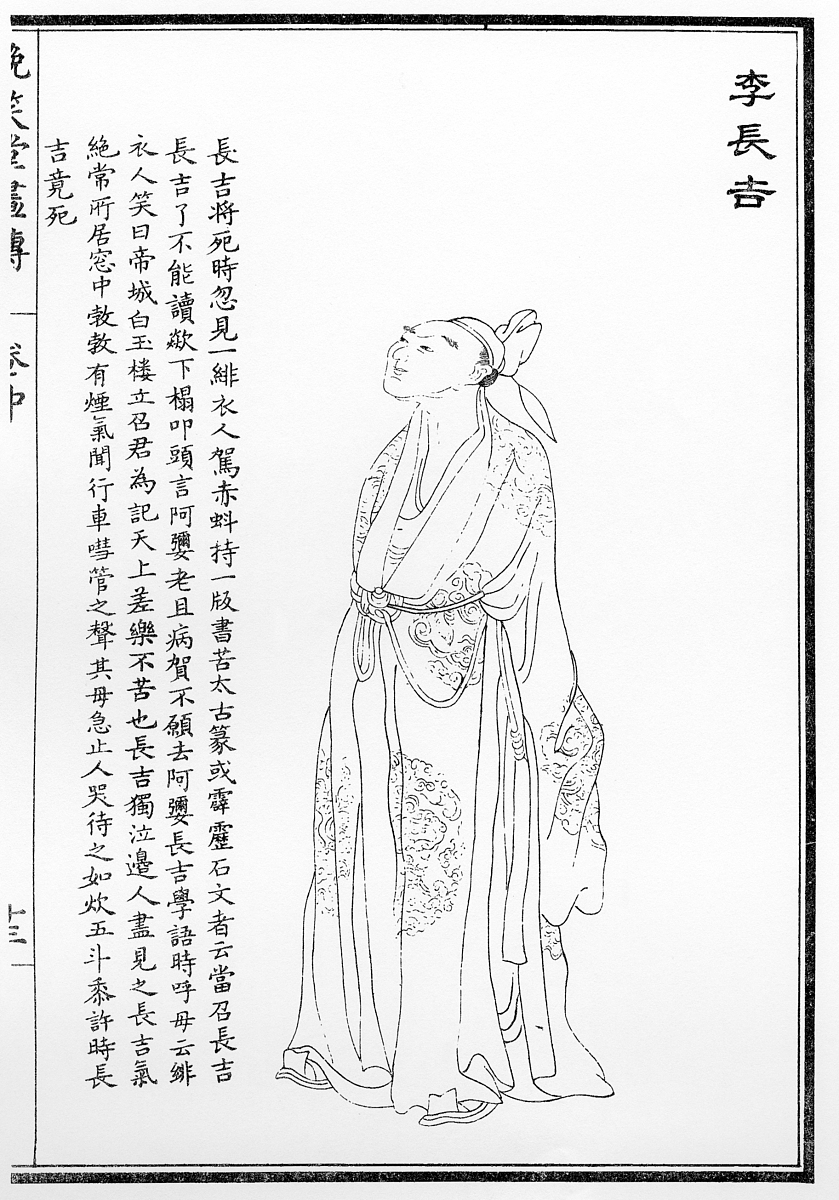 李長吉
長吉将死時忽見一緋衣人駕赤虯持一版書若太古篆或霹靂石文者云當召長吉
長吉了不能讀歘下榻叩頭言阿㜷老且病賀不願去阿㜷長吉學語時呼母云緋
衣人笑曰帝城白玉楼立召君為記天上差樂不苦也長吉獨泣邊人盡見之長吉氣
絕常所居窓中勃勃有煙氣聞行車嘒管之聲其母急止人哭待之如炊五斗黍許時長
吉竟死
晚笑堂畫傳
卷中
十三